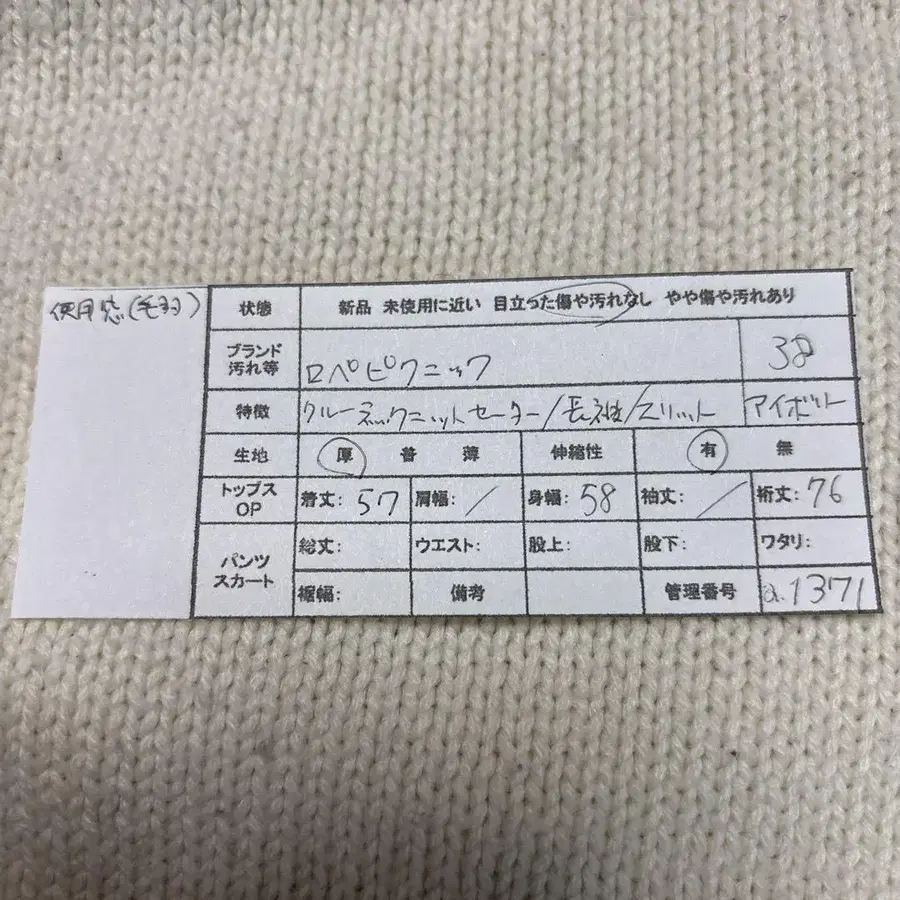 使用感(毛羽)
状態 新品 未使用に近い 目立った傷や汚れなし やや傷や汚れあり
ブランド
汚れ等 ロペピクニック 38
特徴 クルーネックニットセーター/長袖/スリット アイボリー
生地 厚 普 薄 伸縮性 有 無
トップス
OP 着丈: 57 肩幅: / 身幅: 58 袖丈: / 裄丈: 76
パンツ
スカート 総丈: ウエスト: 股上: 股下: ワタリ:
裾幅: 備考 管理番号 a.1371